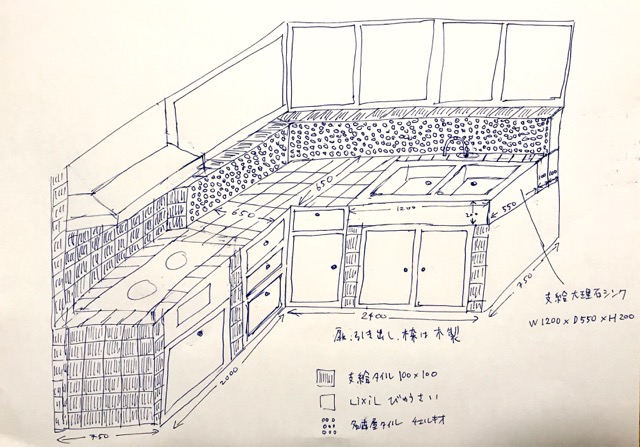 650
650
1200
200
550
100
100
750
2400
2000
750
支給大理石シンク
W1200×D550×H200
扉、引き出し、棟は木製
支給タイル 100×100
LIXIL びゆうさい
名古屋タイル チェルキオ